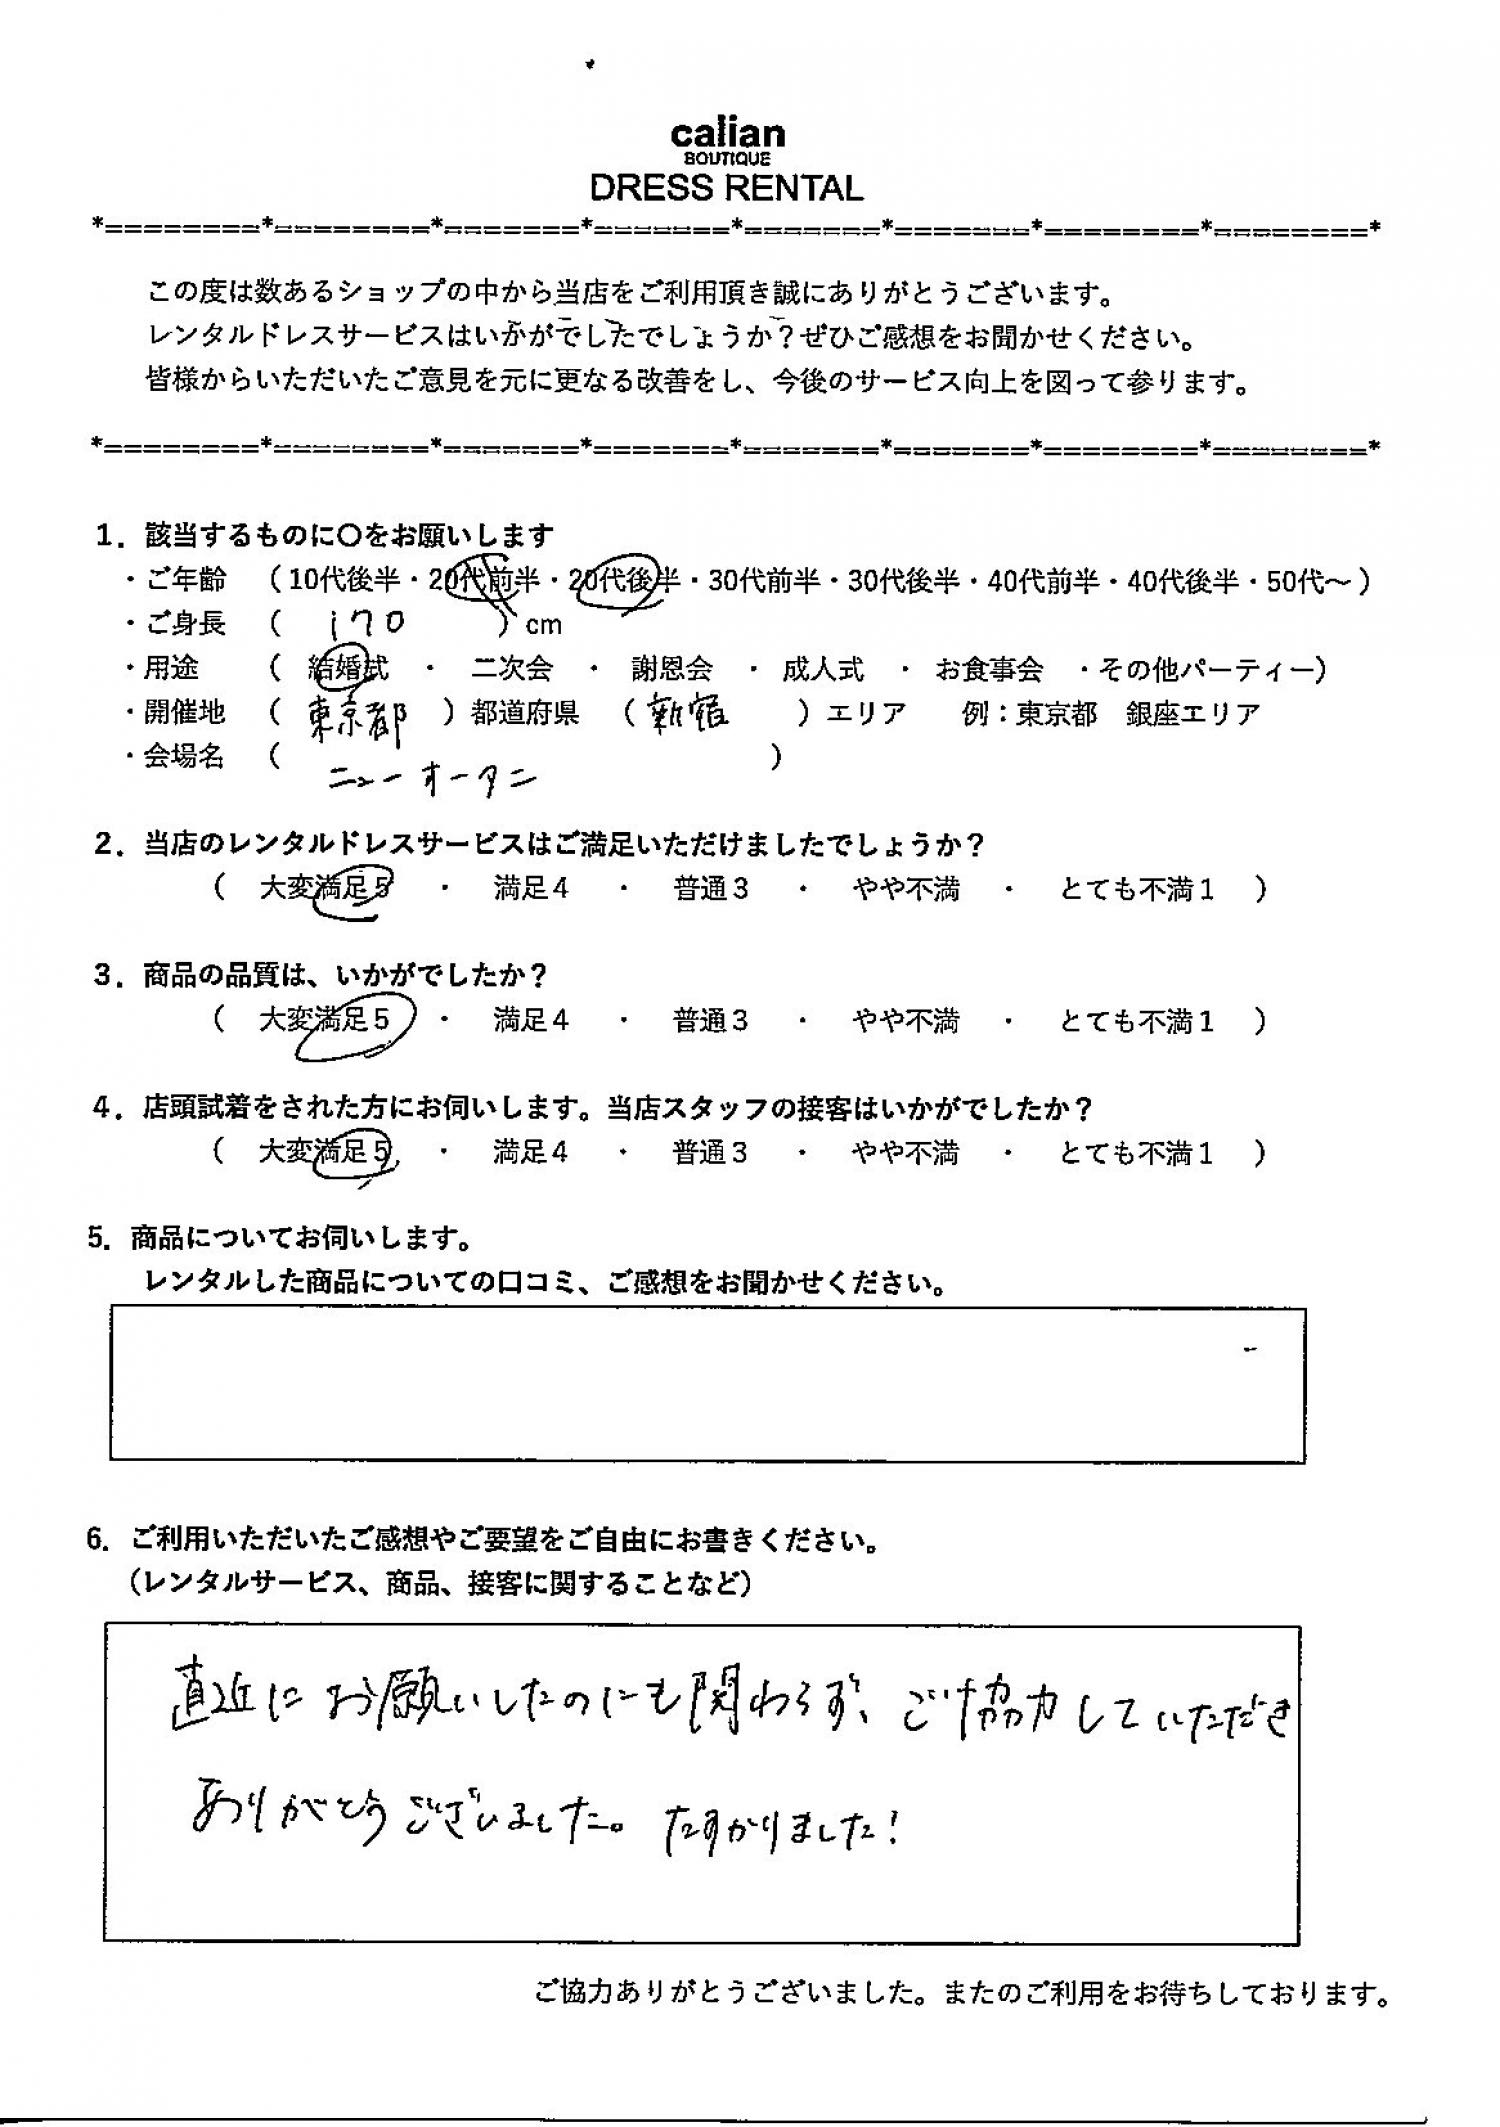 calian
BOUTIQUE
DRESS RENTAL
*========*========*=======*=======*=======*=======*========*========*
この度は数あるショップの中から当店をご利用頂き誠にありがとうございます。
レンタルドレスサービスはいかがでしたでしょうか？ぜひご感想をお聞かせください。
皆様からいただいたご意見を元に更なる改善をし、今後のサービス向上を図って参ります。
*========*========*=======*=======*=======*=======*========*========*
1．該当するものに〇をお願いします
・ご年齢 （10代後半・20代前半・20代後半・30代前半・30代後半・40代前半・40代後半・50代～）
・ご身長 （ 170 ）cm
・用途 （ 結婚式 ・ 二次会 ・ 謝恩会 ・ 成人式 ・ お食事会 ・その他パーティー）
・開催地 （ 東京都 ）都道府県 （ 新宿 ）エリア 例：東京都 銀座エリア
・会場名 （ ニューオータニ ）
2．当店のレンタルドレスサービスはご満足いただけましたでしょうか？
（ 大変満足5 ・ 満足4 ・ 普通3 ・ やや不満 ・ とても不満1 ）
3．商品の品質は、いかがでしたか？
（ 大変満足5 ・ 満足4 ・ 普通3 ・ やや不満 ・ とても不満1 ）
4．店頭試着をされた方にお伺いします。当店スタッフの接客はいかがでしたか？
（ 大変満足5 ・ 満足4 ・ 普通3 ・ やや不満 ・ とても不満1 ）
5．商品についてお伺いします。
レンタルした商品についての口コミ、ご感想をお聞かせください。
6．ご利用いただいたご感想やご要望をご自由にお書きください。
（レンタルサービス、商品、接客に関することなど）
直近にお願いしたのにも関わらず、ご協力していただき
ありがとうございました。たすかりました！
ご協力ありがとうございました。またのご利用をお待ちしております。